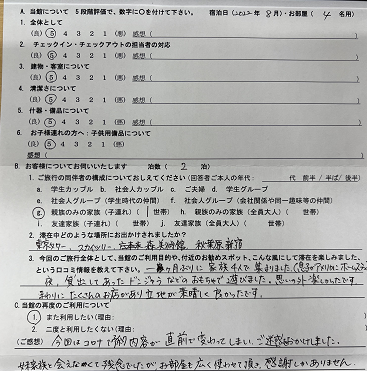 A. 当館について 5段階評価で、数字に○を付けて下さい。 宿泊日(2022年 8月)・お部屋( 4 名用)
1. 全体として
(良) 5 4 3 2 1 (悪) 感想(
2. チェックイン・チェックアウトの担当者の対応
(良) 5 4 3 2 1 (悪) 感想(
3. 建物・客室について
(良) 5 4 3 2 1 (悪) 感想(
4. 清潔さについて
(良) 5 4 3 2 1 (悪) 感想(
5. 什器・備品について
(良) 5 4 3 2 1 (悪) 感想(
6. お子様連れの方へ:子供用備品について
(良) 5 4 3 2 1 (悪)
感想(
B. お客様についてお伺いいたします 泊数( 2 泊)
1. ご旅行の同伴者の構成についておしえてください(回答者ご本人の年代: 代 前半/半ば/後半)
a. 学生カップル b. 社会人カップル c. ご夫婦 d. 学生グループ
e. 社会人グループ(学生時代の仲間) f. 社会人グループ(会社関係や同一趣味等の仲間)
g. 親族のみの家族(子連れ)( 1世帯) h. 親族のみの家族(全員大人)( 世帯)
i. 友達家族(子連れ)( 世帯) j. 友達家族(全員大人)( 世帯)
2. 滞在中どのような場所にお出かけされましたか?
東京タワー、スカイツリー、 美術館 秋葉原 新宿
3. 今回のご旅行全体として、当館のご利用目的や、付近のお勧めスポット、こんな風にして滞在を楽しみました、
という口コミ情報を教えて下さい。 一ヶ月ぶりに家族4人で集まりました。
夜、貸出してあったドンジャラなどのおもちゃで遊びました。思いの外楽しかったです
まわりにたくさんのお店があり立地が素晴しく良かったです。
C. 当館の再度のご利用について
1. また利用したい(理由:
2. 二度と利用したくない(理由:
(ご感想) 今回はコロナで予約内容が直前で変わってしまい、ご迷惑おかけしました。
家族と会えなくて残念でしたがお部屋も広く使わせて頂き、感謝しかありません。